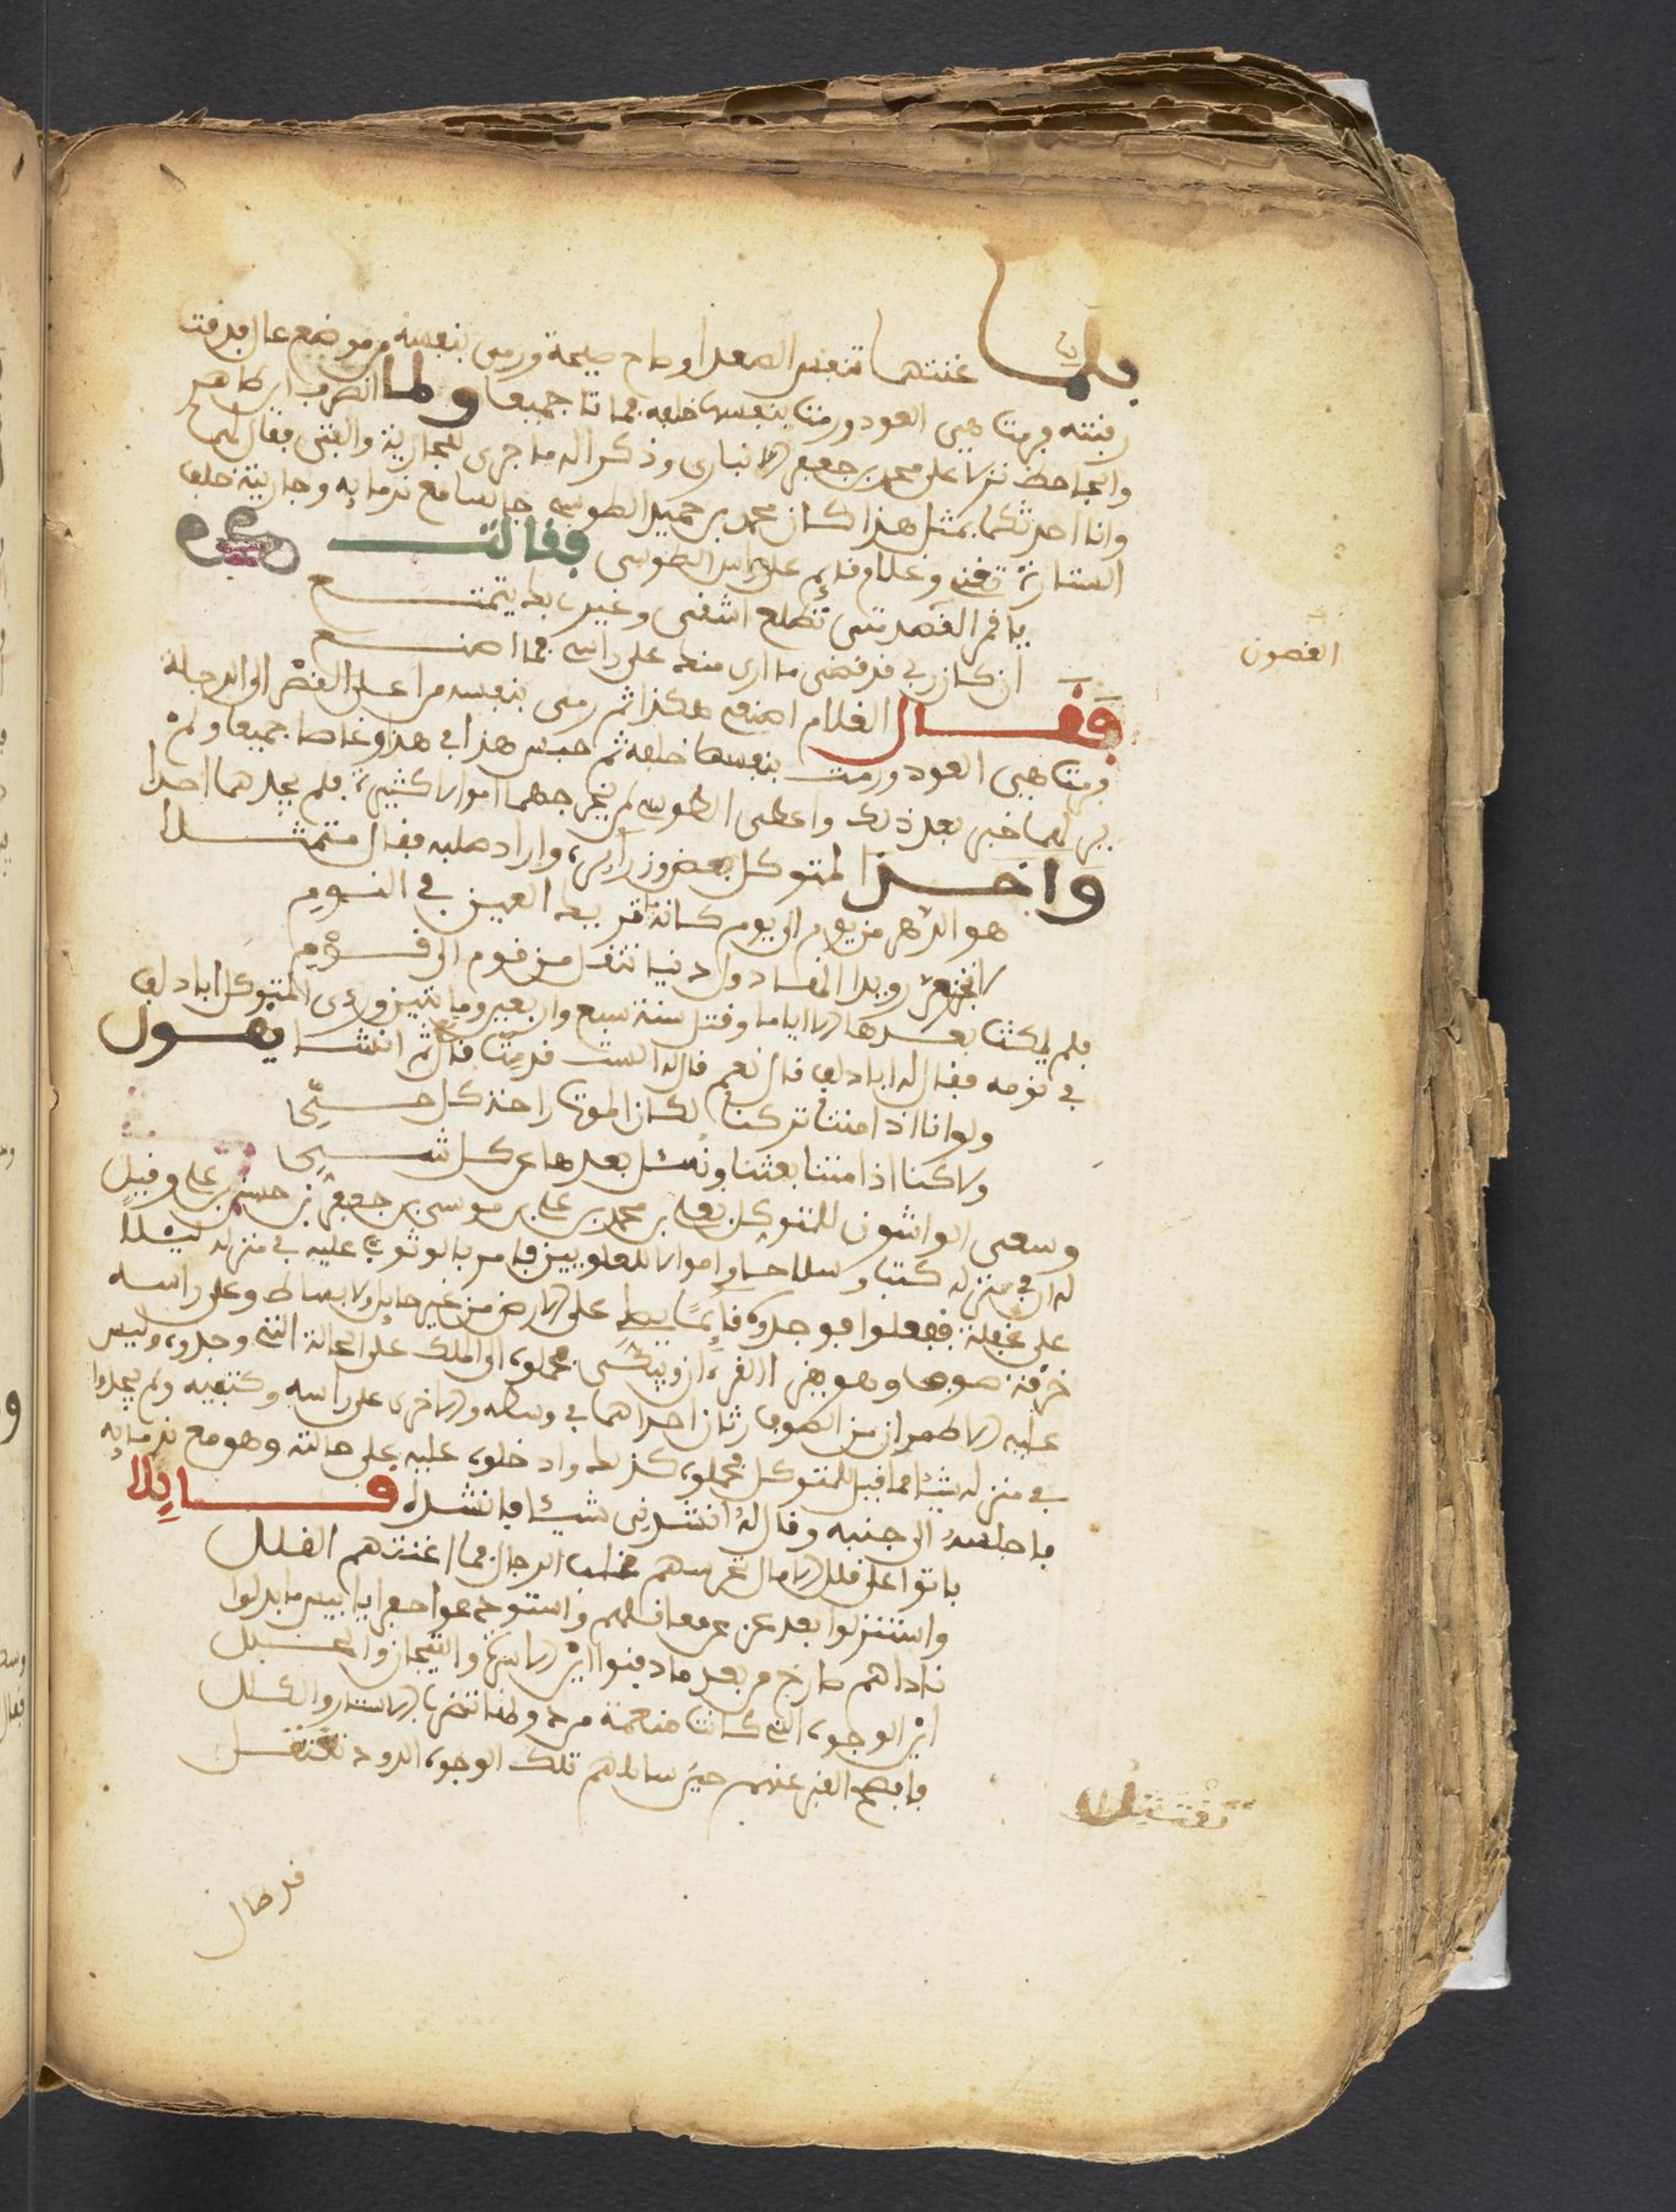 فلما غنتهما تنفس الصعدا وصاح صيحة ورمى بنفسه من موضع عال فدقت
رقبته فرمت هي العود ورمت بنفسها خلفه فماتا جميعا ولما انصرف ابن طاهر
والجاحظ نزلا على محمد بن جعفر الانباري وذكرا له ما جرى للجارية والفتى فقال لهما
وانا احدثكما بمثل هذا كان محمد بن حميد الطوسي جالسا مع ندمايه وجاريته خلف
الستارة تغني وغلام قايم على راس الطوسي فقالت
يا قمر القصر متى تطلع اشقى وغيري بك يتمتع
ان كان ربي قد قضى ما ارى منك على راسي فما اصنع
الغصون
فقال الغلام اصنع هكذا ثم رمى بنفسه من اعلى القصر الى الدجلة
فرمت هي العود ورمت بنفسها خلفه ثم حبس هذا في هذا وغاصا جميعا ولم
ير لهما خبر بعد ذلك واعطى الطوسي لمن يخرجهما اموالا كثيرة فلم يجدهما احدا
واخذ المتوكل بعض وزرايه واراد صلبه فقال متمثلا
هو الدهر من يوم الى يوم كانه تريك العين في النوم
لا تجزعن رويدا انها دول دنيا تنقل من قوم الى قوم
فلم يمكث بعدها الا اياما وقتل سنة سبع واربعين ومايتين ورءى المتوكل ابا دلف
في نومه فقال له ابا دلف قال نعم قال له الست قد مت قال ثم انشا يقول
ولو انا اذا متنا تركنا لكان الموت راحة كل حي
ولاكنا اذا متنا بعثنا ونسئل بعدها عن كل شي
وسعى الواشون للمتوكل بعلي بن محمد بن علي بن موسى بن جعفر بن حسين بن علي وقيل
له ان في منزله كتبا وسلاحا واموالا للعلويين فامر بالوثوب عليه في منزله ليلا
على غفلة ففعلوا فوجدوه قايما يصلي على الارض من غير حايل ولا بساط وعلى راسه
خرقة صوف وهو يقرا القرءان ويبكي فحملوه الى الملك على الحالة التي وجدوه وليس
عليه الا طمران من الصوف رثان احداهما في وسطه والاخرى على راسه وكتفيه ولم يجدوا
في منزله شيئا مما قيل للمتوكل فحملوه كذلك وادخلوه عليه على حالته وهو مع ندمايه
فاجلسه الى جنبه وقال له انشدني شيئا فانشده قايلا
باتوا على قلل الاجبال تحرسهم غلب الرجال فما اغنتهم القلل
واستنزلوا بعد عز عن معاقلهم واستودعوا حفرا يا بيس ما بدلوا
ناداهم صارخ من بعد ما دفنوا اين الاسرة والتيجان والحلل
اين الوجوه التي كانت منعمة من دونها تضرب الاستار والكلل
فافصح القبر عنهم حين سالهم تلك الوجوه الدود تقتتل
تقتتل
قد طال